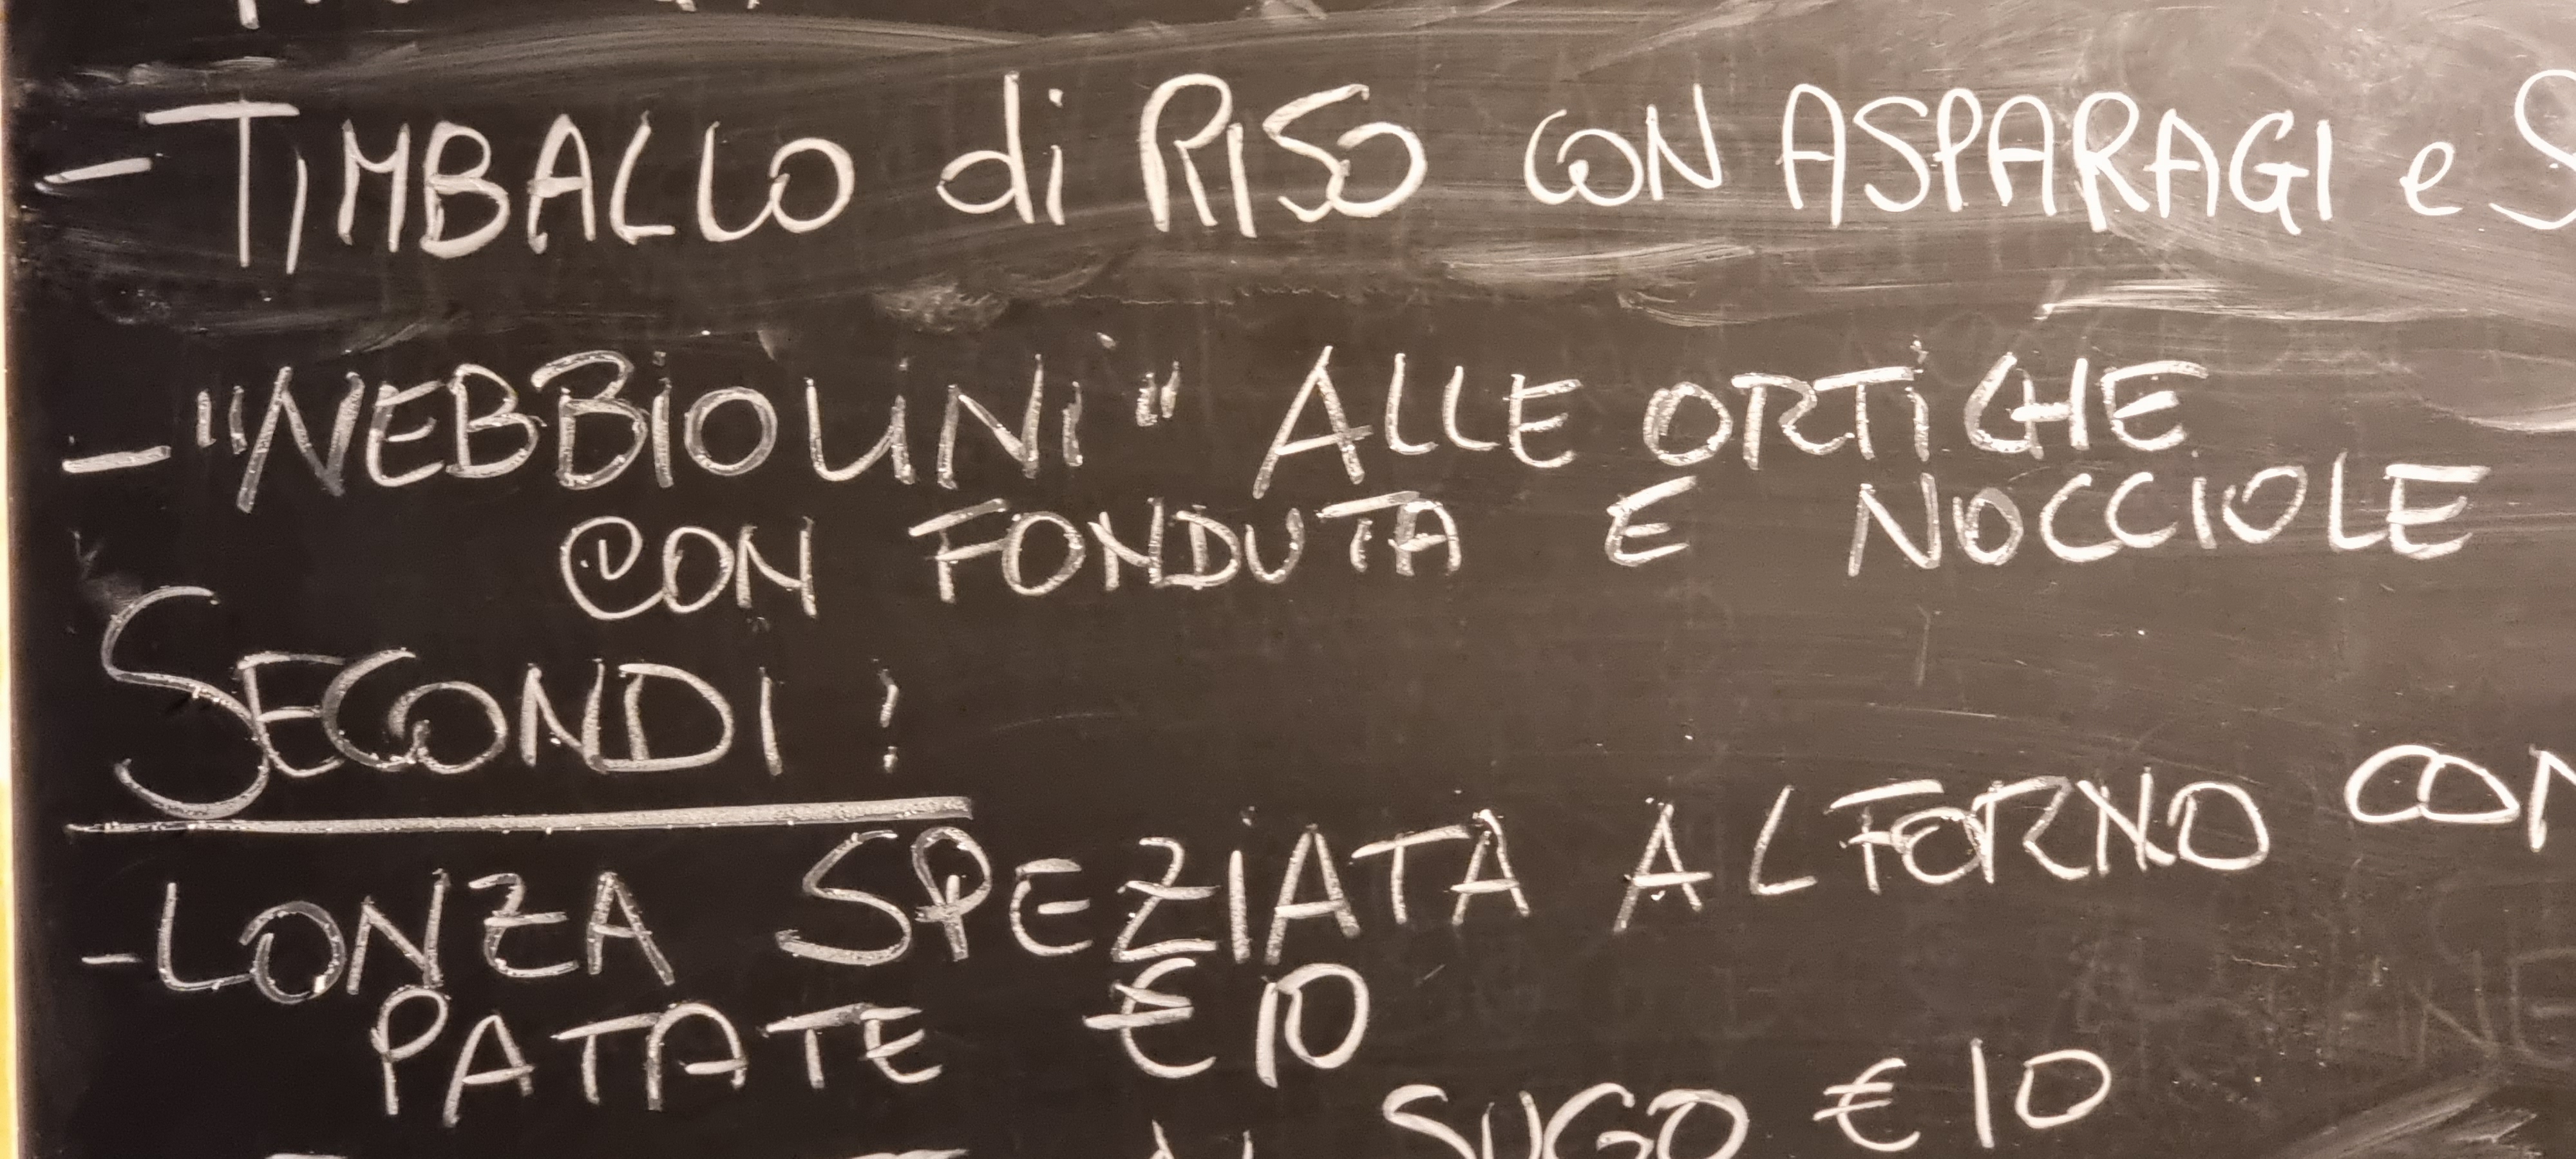 - TIMBALLO di RISO CON ASPARAGI e
- "NEBBIOLINI" ALLE ORTICHE
CON FONDUTA E NOCCIOLE
SECONDI:
- LONZA SPEZIATA AL FORNO CON
PATATE €10
SUGO €10